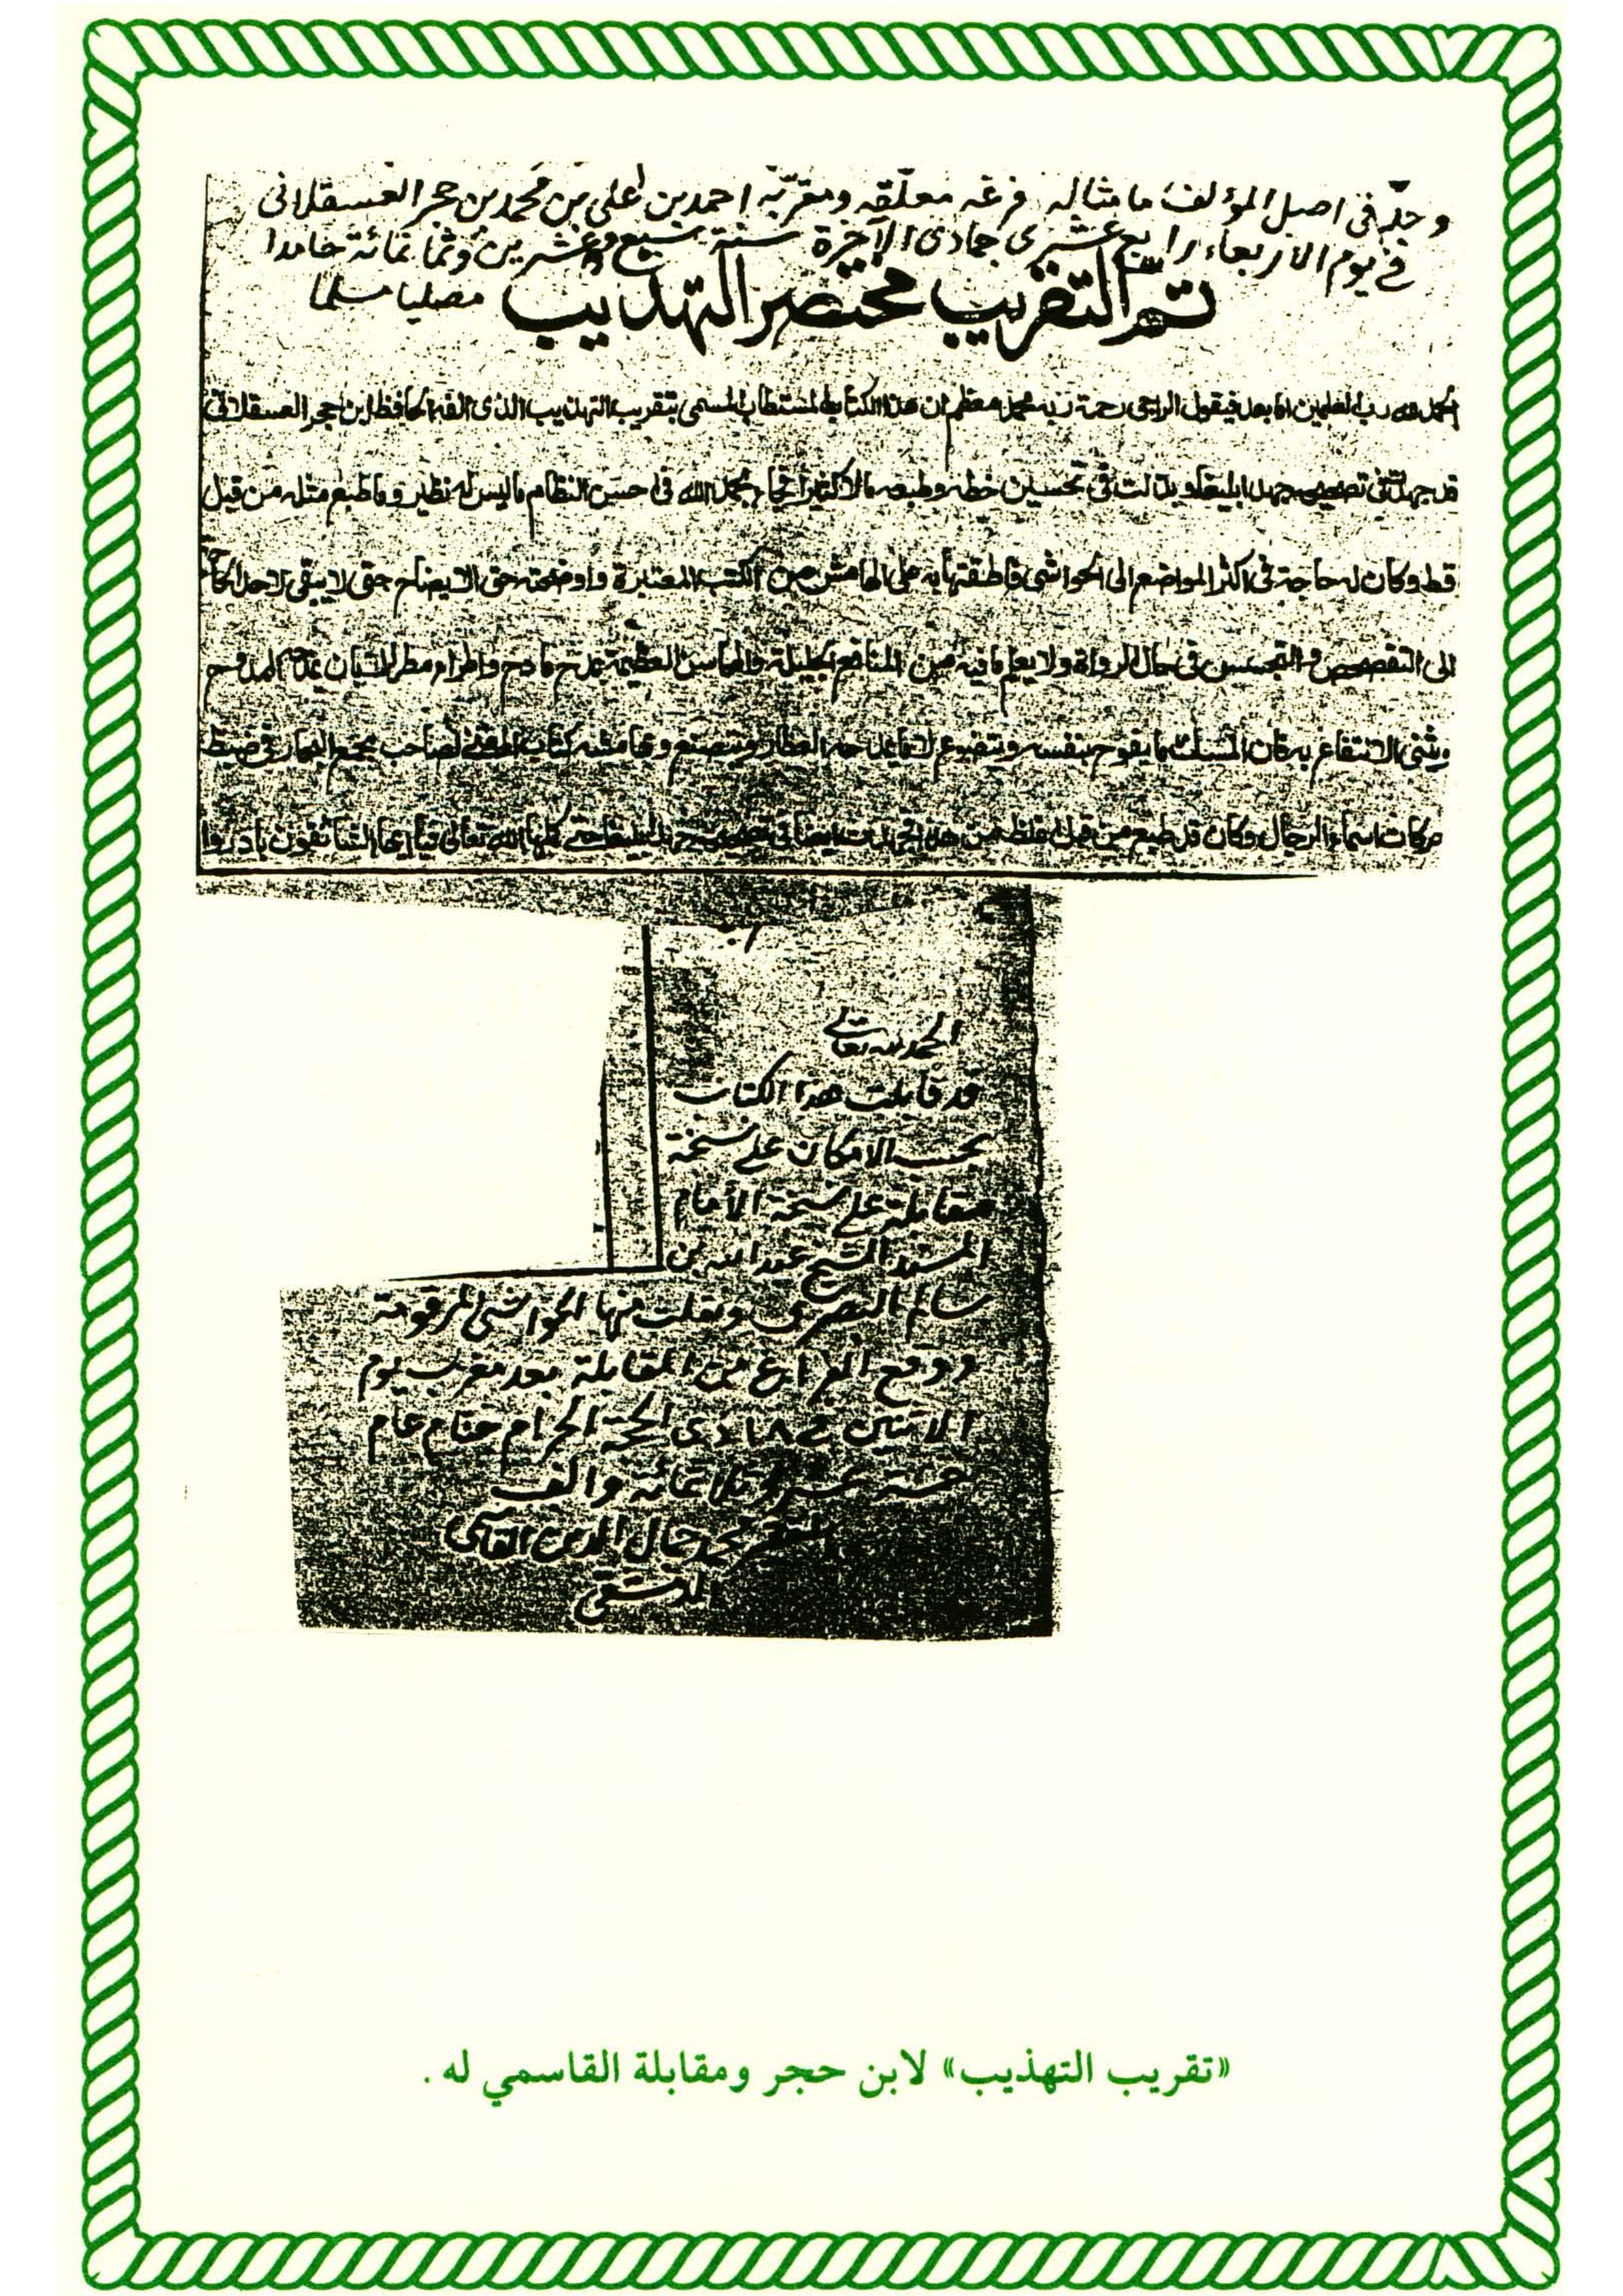 وجد في اصل المؤلف ما مثاله فرغه معلّقه ومقرّبه احمد بن علي بن محمد بن حجر العسقلاني
في يوم الاربعاء رابع عشرى جمادى الآخرة سنة سبع وعشرين وثمانمائة حامدا
مصليا مسلما
تم التقريب مختصر التهذيب
الحمد لله رب العلمين اما بعد فيقول الراجى رحمة ربه محمد معظم ان هذا الكتاب المستطاب المسمى بتقريب التهذيب الذى الفه الحافظ ابن حجر العسقلانى
قد جهدت فى تصحيحه جهدا بليغا وبذلت فى تحسين خطه وطبعه مالا كثيرا فجاء بحمد الله فى احسن النظام ماليس له نظير وما طبع مثله من قبل
قط وكان له حاجة فى اكثر المواضع الى الحواشى على الهامش من الكتب المعتبرة واوضحته حق الايضاح حتى لا يبقى لاحد
الى التفحص والتجسس فى حال الرواة ولا يعلم ما فيه من المنافع الجليلة والمحاسن العظيمة بمدح مادح واطراء مطر
الانتفاع به فان المسك ما يفوح بنفسه ويتضوع لا ما يمدحه العطار ويتصنع وبهامشه كتاب المغنى لصاحب مجمع البحار فى ضبط
حركات اسماء الرجال وكان قد طبع من قبل
الحمد لله تعالى
قد قابلت هذا الكتاب
بحسب الامكان على نسخة
مقابلة على نسخة الأمام
المسند الشيخ عبد الله بن
سالم البصرى ونقلت منها الحواشى المرقومة
ووقع الفراغ من المقابلة بعد مغرب يوم
الاثنين في ١٨ ذى الحجة الحرام ختام عام
خمسة عشر وثلاثمائة والف
جمال الدين القاسمى
الدمشقى
«تقريب التهذيب» لابن حجر ومقابلة القاسمي له .